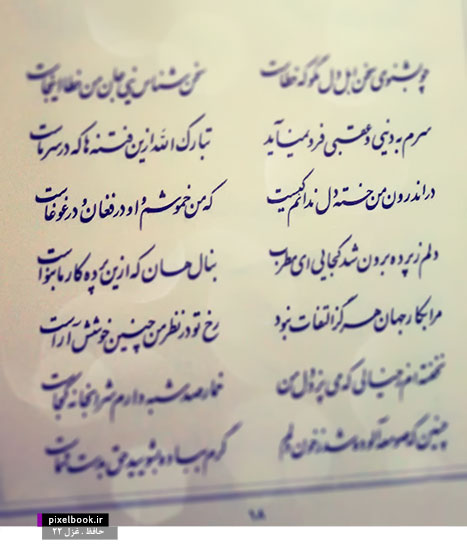 چو بشنوی سخن اهل دل مگو که خطاست سخن شناس نیی جان من خطا اینجاست
سرم به دنیی و عقبی فرو نمیآید تبارک الله ازین فتنه ها که در سر ماست
در اندرون من خسته دل ندانم کیست که من خموشم و او در فغان و در غوغاست
دلم ز پرده برون شد کجایی ای مطرب بنال هان که ازین پرده کار ما بنواست
مرا بکار جهان هرگز التفات نبود رخ تو در نظر من چنین خوشش آراست
نخفته ام ز خیالی که می پزد دل من خمار صد شبه دارم شرابخانه کجاست
چنین که صومعه آلوده شد ز خون دلم گرم بباده بشویید حق بدست شماست
۱۸
pixelbook.ir
حافظ . غزل ۲۲